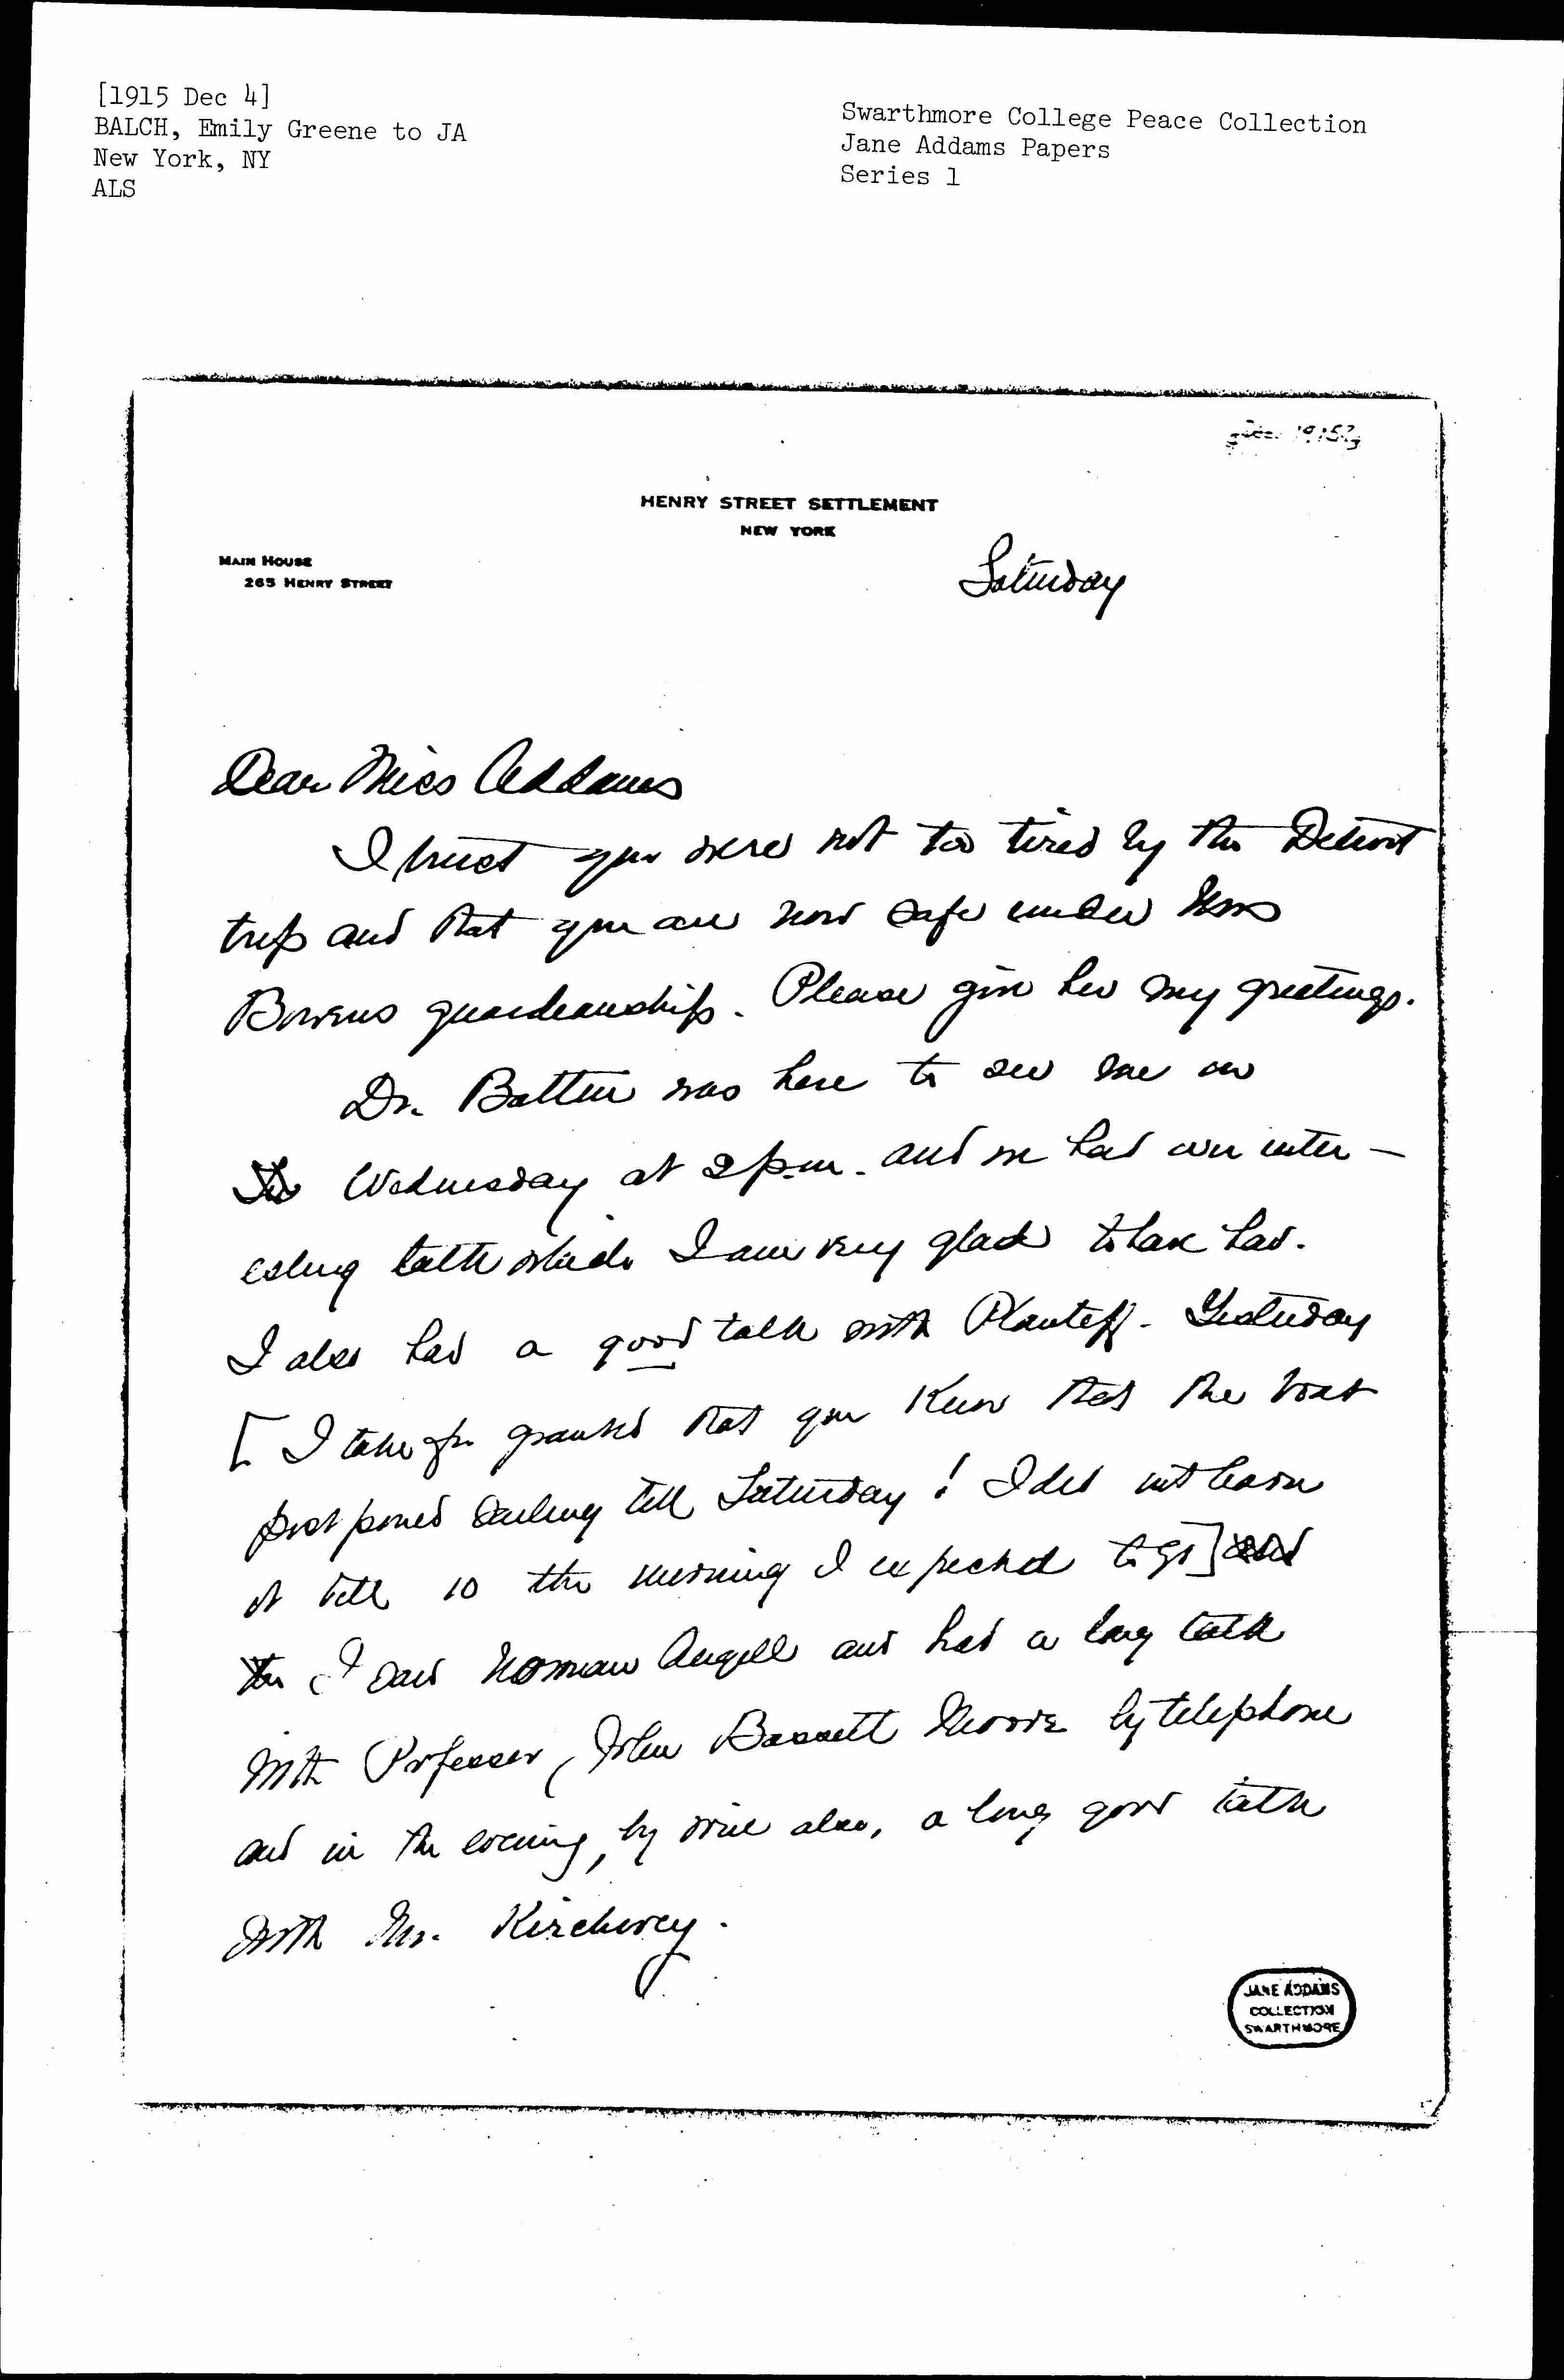 [1915 Dec 4]
BALCH, Emily Greene to JA
New York, NY
ALS
Swarthmore College Peace Collection
Jane Addams Papers
Series 1
HENRY STREET SETTLEMENT
NEW YORK
MAIN HOUSE
265 HENRY STREET
Saturday
Dear Miss Addams
I trust you were not too tired by the Detroit
trip and that you are now safe under Mrs
Bowens guardianship. Please give her my greetings.
Dr. Batten was here to see me on
Wednesday at 2 p.m. and we had an inter-
esting talk which I am very glad to have had.
I also had a good talk with Plantiff. Yesterday
[I take for granted that you know that the boat
postponed sailing till Saturday! I did not learn
it till 10 the morning I expected to go] and
the I saw Norman Angell and had a long talk
with Professor, John Bassett Moore by telephone
and in the evening, by wire also, a long good talk
with Mr. Kirchwey.
JANE ADDAMS
COLLECTION
SWARTHMORE